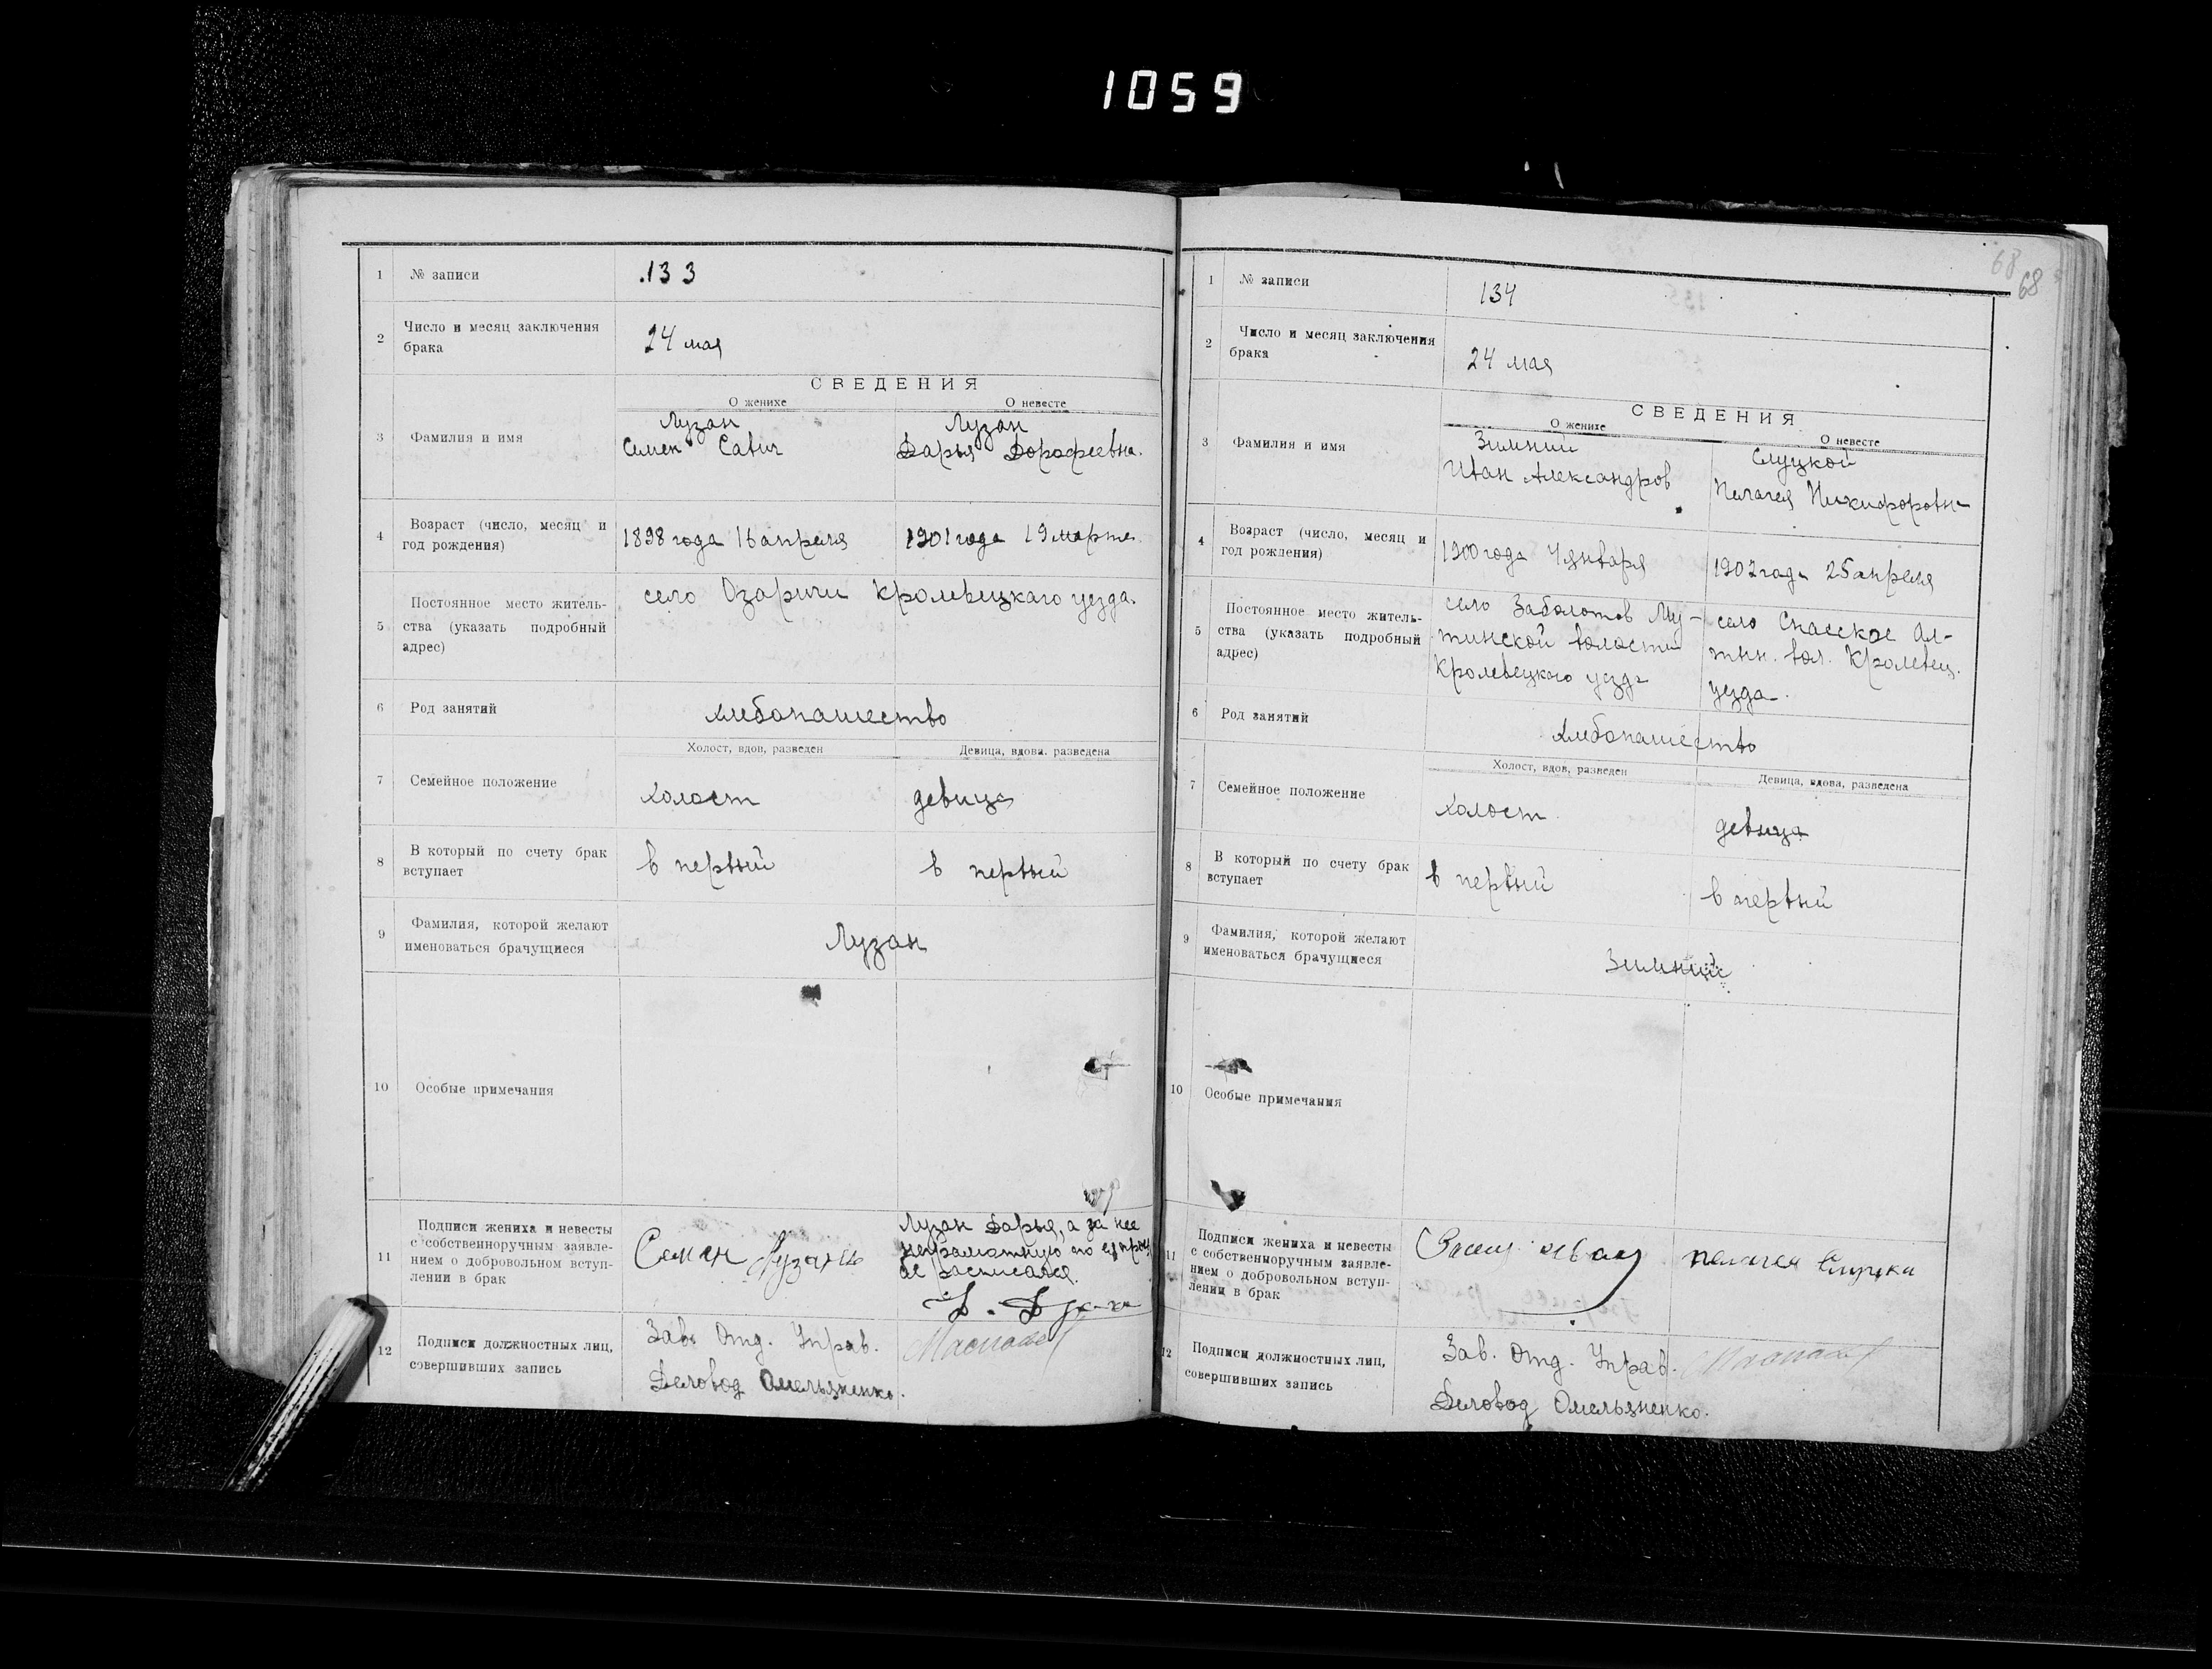 1059
1 № записи .133
2 Число и месяц заключения
брака
24 мая
СВЕДЕНИЯ
О женихе О невесте
3 Фамилия и имя
Лузан Лузан
Семен Савич Дарья Дорофеевна.
4 Возраст (число, месяц и
год рождения)
1898 года 16 апреля 1901 года 19 марта.
5 Постоянное место житель-
ства (указать подробный
адрес)
село Озаричи Кролевецкаго уезда.
6 Род занятий хлебопашество
Холост, вдов, разведен Девица, вдова, разведена
7 Семейное положение
холост девица
8 В который по счету брак
вступает
в первый в первый
9 Фамилия, которой желают
именоваться брачущиеся
Лузан
10 Особые примечания
11 Подписи жениха и невесты
с собственноручным заявле-
нием о добровольном вступ-
лении в брак
Семен Лузанъ
Лузан Дарья, а за нее
неграмотную по ея прось
бе росписался.
12 Подписи должностных лиц,
совершивших запись
Зав. Отд. Управ.
Деловод Омельяненко.
68
68
1 № записи 134
2 Число и месяц заключения
брака
24 мая
СВЕДЕНИЯ
О женихе О невесте
3 Фамилия и имя
Зимний Слуцкой
Иван Александров Пелагея Никифоровн
4 Возраст (число, месяц и
год рождения)
1900 года 4 января 1902 года 25 апреля
5 Постоянное место житель-
ства (указать подробный
адрес)
село Заболотов Му-
тинской волости
Кролевецкаго уезда
село Спасское Ал-
тын. вол. Кролевец.
уезда.
6 Род занятий хлебопашество
Холост, вдов, разведен Девица, вдова, разведена
7 Семейное положение
холост девица
8 В который по счету брак
вступает
в первый в первый
9 Фамилия, которой желают
именоваться брачущиеся
Зимний
10 Особые примечания
11 Подписи жениха и невесты
с собственноручным заявле-
нием о добровольном вступ-
лении в брак
пелагея
12 Подписи должностных лиц,
совершивших запись
Зав. Отд. Управ.
Деловод Омельяненко.